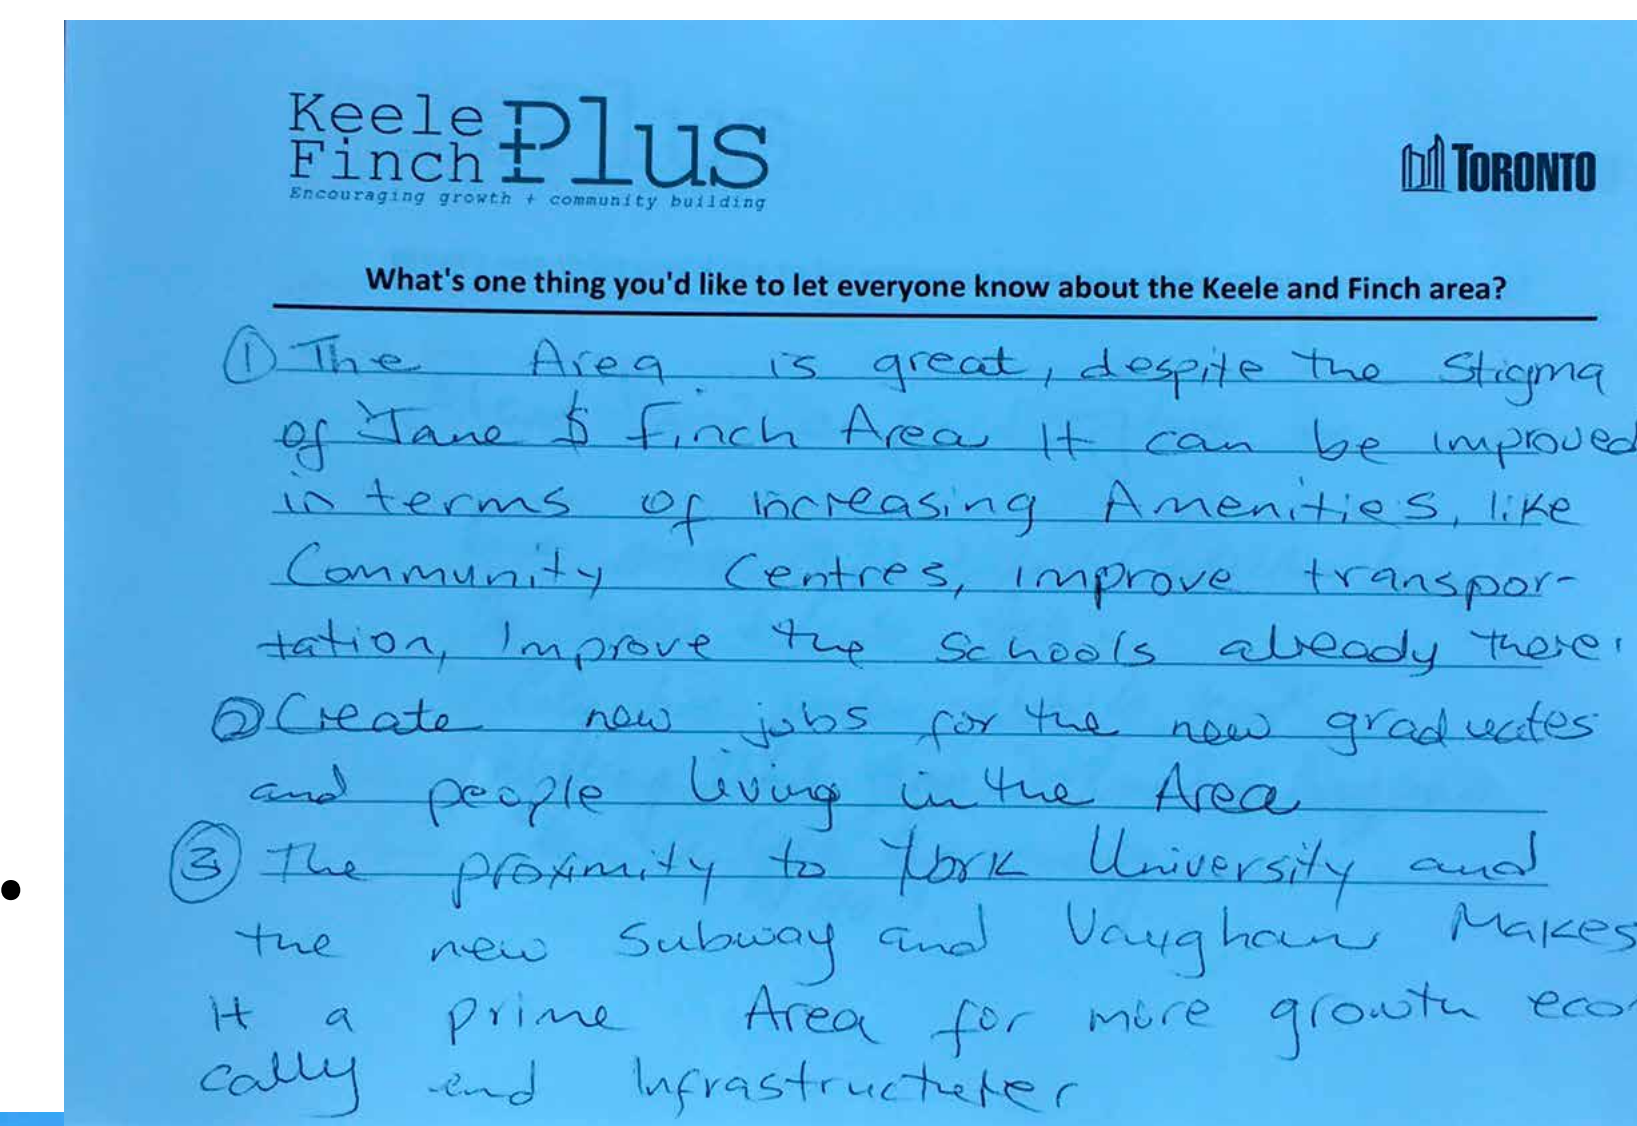 Keele
Finch Plus
Encouraging growth + community building
TORONTO
What's one thing you'd like to let everyone know about the Keele and Finch area?
① The Area is great, despite the Stigma
of Jane & Finch Area It can be improved
in terms of increasing Amenities, like
Community Centres, improve transpor-
tation, Improve the Schools already there.
② Create new jobs for the new graduates
and people living in the Area
③ The proximity to York University and
the new Subway and Vaughan Makes
It a prime Area for more growth eco
cally and Infrastructurer